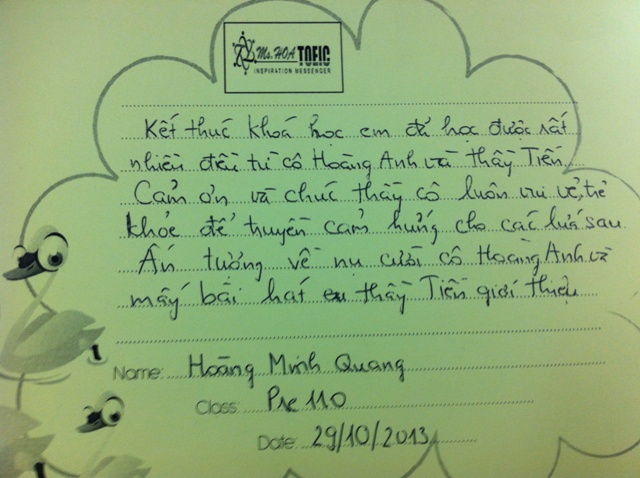 Ms. HOA TOEIC
INSPIRATION MESSENGER
Kết thúc khoá học em đã học được rất
nhiều điều từ cô Hoàng Anh và thầy Tiến.
Cảm ơn và chúc thầy cô luôn vui vẻ, trẻ
khỏe để truyền cảm hứng cho các lứa sau
Ấn tượng về nụ cười cô Hoàng Anh và
mấy bài hát thầy Tiến giới thiệu
Name: Hoàng Minh Quang
Class: Pre 110
Date: 29/10/2013